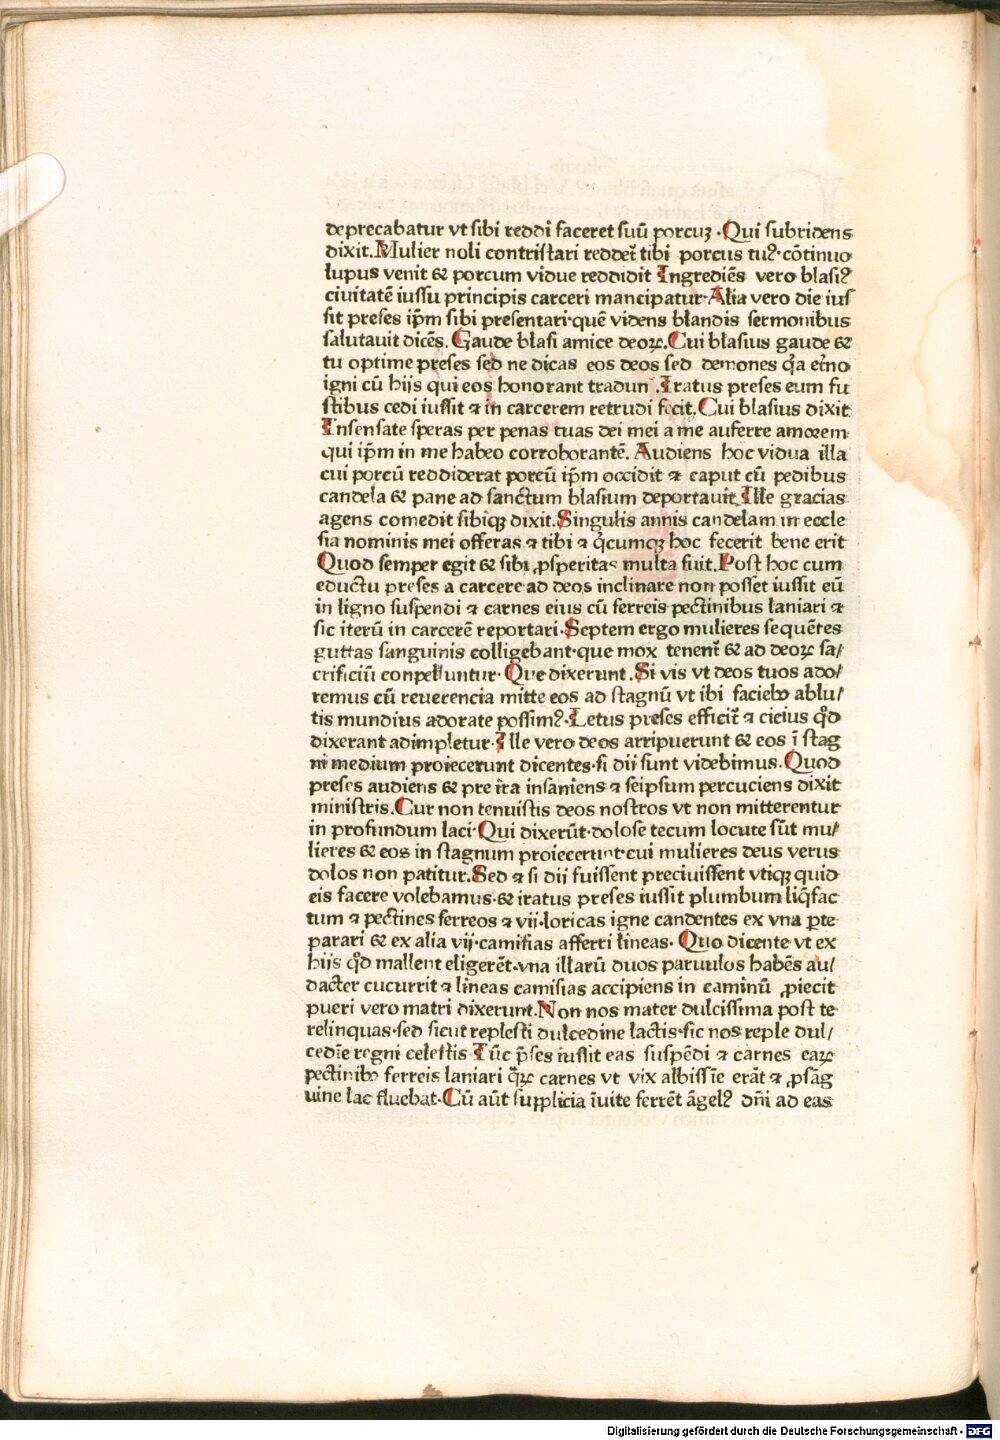 deprecabatur vt sibi reddi faceret suū porcuꝫ. Qui subridens
dixit. Mulier noli contristari reddet̄ tibi porcus tuꝰ. cōtinuo
lupus venit & porcum vidue reddidit Ingrediēs vero blasiꝰ
ciuitatē iussu principis carceri mancipatur. Alia vero die ius
sit preses ip̄m sibi presentari. quē videns blandis sermonibus
salutauit dicēs. Gaude blasi amice deoꝝ. Cui blasius gaude &
tu optime preses sed ne dicas eos deos sed demones q̄a et̄no
igni cū hijs qui eos honorant tradun̄. Iratus preses eum fu
stibus cedi iussit ⁊ in carcerem retrudi fecit. Cui blasius dixit
Insensate speras per penas tuas dei mei a me auferre amorem
qui ip̄m in me habeo corroborantē. Audiens hoc vidua illa
cui porcū reddiderat porcū ip̄m occidit ⁊ caput cū pedibus
candela & pane ad sanctum blasium deportauit. Ille gracias
agens comedit sibiqꝫ dixit. Singulis annis candelam in eccle
sia nominis mei offeras ⁊ tibi ⁊ q̄cumqꝫ hoc fecerit bene erit
Quod semper egit & sibi ꝓsperitas multa fuit. Post hoc cum
eductu preses a carcere ad deos inclinare non posset iussit eū
in ligno suspendi ⁊ carnes eius cū ferreis pectinibus laniari ⁊
sic iterū in carcerē reportari. Septem ergo mulieres sequētes
guttas sanguinis colligebant. que mox tenent̄ & ad deoꝝ sa/
crificiū conpelluntur. Que dixerunt. Si vis vt deos tuos ado/
remus cū reuerencia mitte eos ad stagnū vt ibi faciebꝰ ablu/
tis mundius adorate possimꝰ. Letus preses efficit̄ ⁊ cicius qđ
dixerant adimpletur. Ille vero deos arripuerunt & eos ī stag
ni medium proiecerunt dicentes. si dii sunt videbimus. Quod
preses audiens & pre ira insaniens ⁊ seipsum percuciens dixit
ministris. Cur non tenuistis deos nostros vt non mitterentur
in profundum laci. Qui dixerūt. dolose tecum locute sūt mu/
lieres & eos in stagnum proiecerunt. cui mulieres deus verus
dolos non patitur. Sed ⁊ si dii fuissent preciuissent vtiqꝫ quid
eis facere volebamus. & iratus preses iussit plumbum liq̄fac
tum ⁊ pectines ferreos ⁊ vij. loricas igne candentes ex vna ꝑte
parari & ex alia vij. camisias afferri lineas. Quo dicente vt ex
hijs qđ mallent eligerēt. vna illarū duos paruulos habēs au/
dacter cucurrit ⁊ lineas camisias accipiens in caminū ꝓiecit
pueri vero matri dixerunt. Non nos mater dulcissima post te
relinquas. sed sicut replesti dulcedine lactis. sic nos reple dul/
cedīe regni celestis. Tūc p̄ses iussit eas suspēdi ⁊ carnes eaꝝ
pectinibꝰ ferreis laniari q̄ꝝ carnes vt vix albissīe erāt ⁊ ꝓ sāg
uine lac fluebat. Cū aūt supplicia īuite ferrēt āgelꝰ dn̄i ad eas
Digitalisierung gefördert durch die Deutsche Forschungsgemeinschaft - DFG